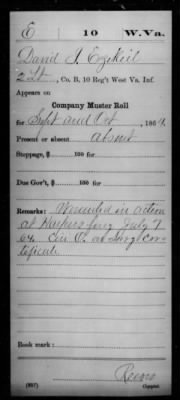 E 10 W.Va.
David J. Ezekiel
2 Lt, Co. B, 10 Reg't West Va. Inf.
Appears on
Company Muster Roll
for Sept and Oct, 1864.
Present or absent absent
Stoppage, $ 100 for
Due Gov't, $ 100 for
Remarks: Wounded in action
at Harpers ferry July 7
64. on Surg Cer
tificate.
Book mark:
(857) Reeves Copyist.